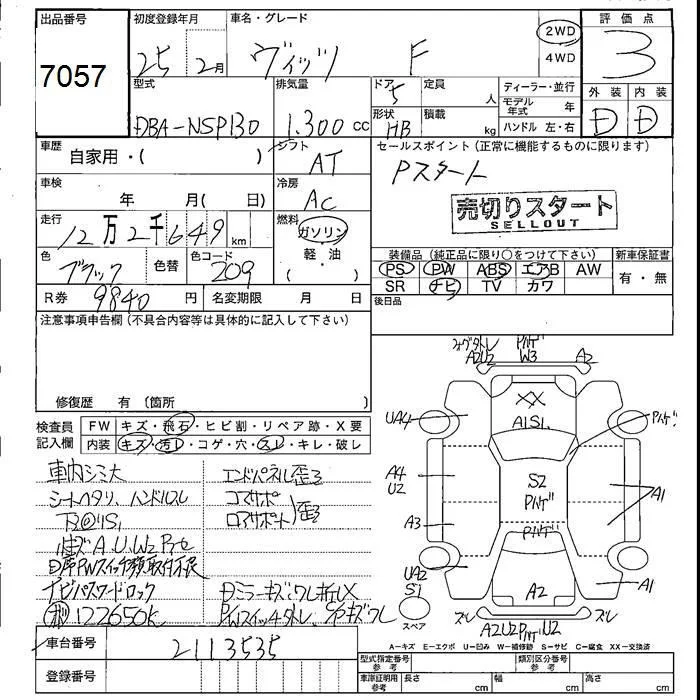 出品番号 初度登録年月 車名・グレード 評価点
7057 25 2月 ヴィッツ F 2WD 4WD 3
型式 排気量 ドア 5 定員 人 ディーラー・並行 外装 内装
DBA-NSP130 1.300cc 形状 HB 積載 kg モデル年式 年 ハンドル 左・右 D D
車歴 自家用・( ) シフト AT セールスポイント(正常に機能するものに限ります)
Pスタート
車検 年 月( 日) 冷房 AC
売切りスタート
SELLOUT
走行 12万2千649km 燃料 ガソリン・軽油( )
色 ブラック 色替 色コード 209 装備品(純正品に限り○をつけて下さい) 新車保証書
PS PW ABS エアB AW 有・無
SR ナビ TV カワ
R券 9840円 名変期限 月 日 後日品
注意事項申告欄(不具合内容等は具体的に記入して下さい)
修復歴 有(箇所
検査員記入欄 FW キズ・飛石・ヒビ割・リペア跡・X要
内装 キズ・汚レ・コゲ・穴・スレ・キレ・破レ
車内シミ大 エンドパネル歪ミ
シートヘタリ、ハンドルスレ コアサポ
ロアサポート 歪ミ
ナビパスワードロック
122650K
車台番号 2113535
登録番号
A2U2 W3 A2
XX
A1S1
UA4 Pハゲ
A4 U2 S2 Pハゲ A1
A3 Pハゲ
UA2 S1 A2 A1
スペア スレ A2U2PハゲU2 スレ
A=キズ E=エクボ U=凹み W=補修跡 S=サビ C=腐食 XX=交換済
型式指定番号 参考 類別区分番号 参考
車庫証明用 参考 長さ cm 幅 cm 高さ cm